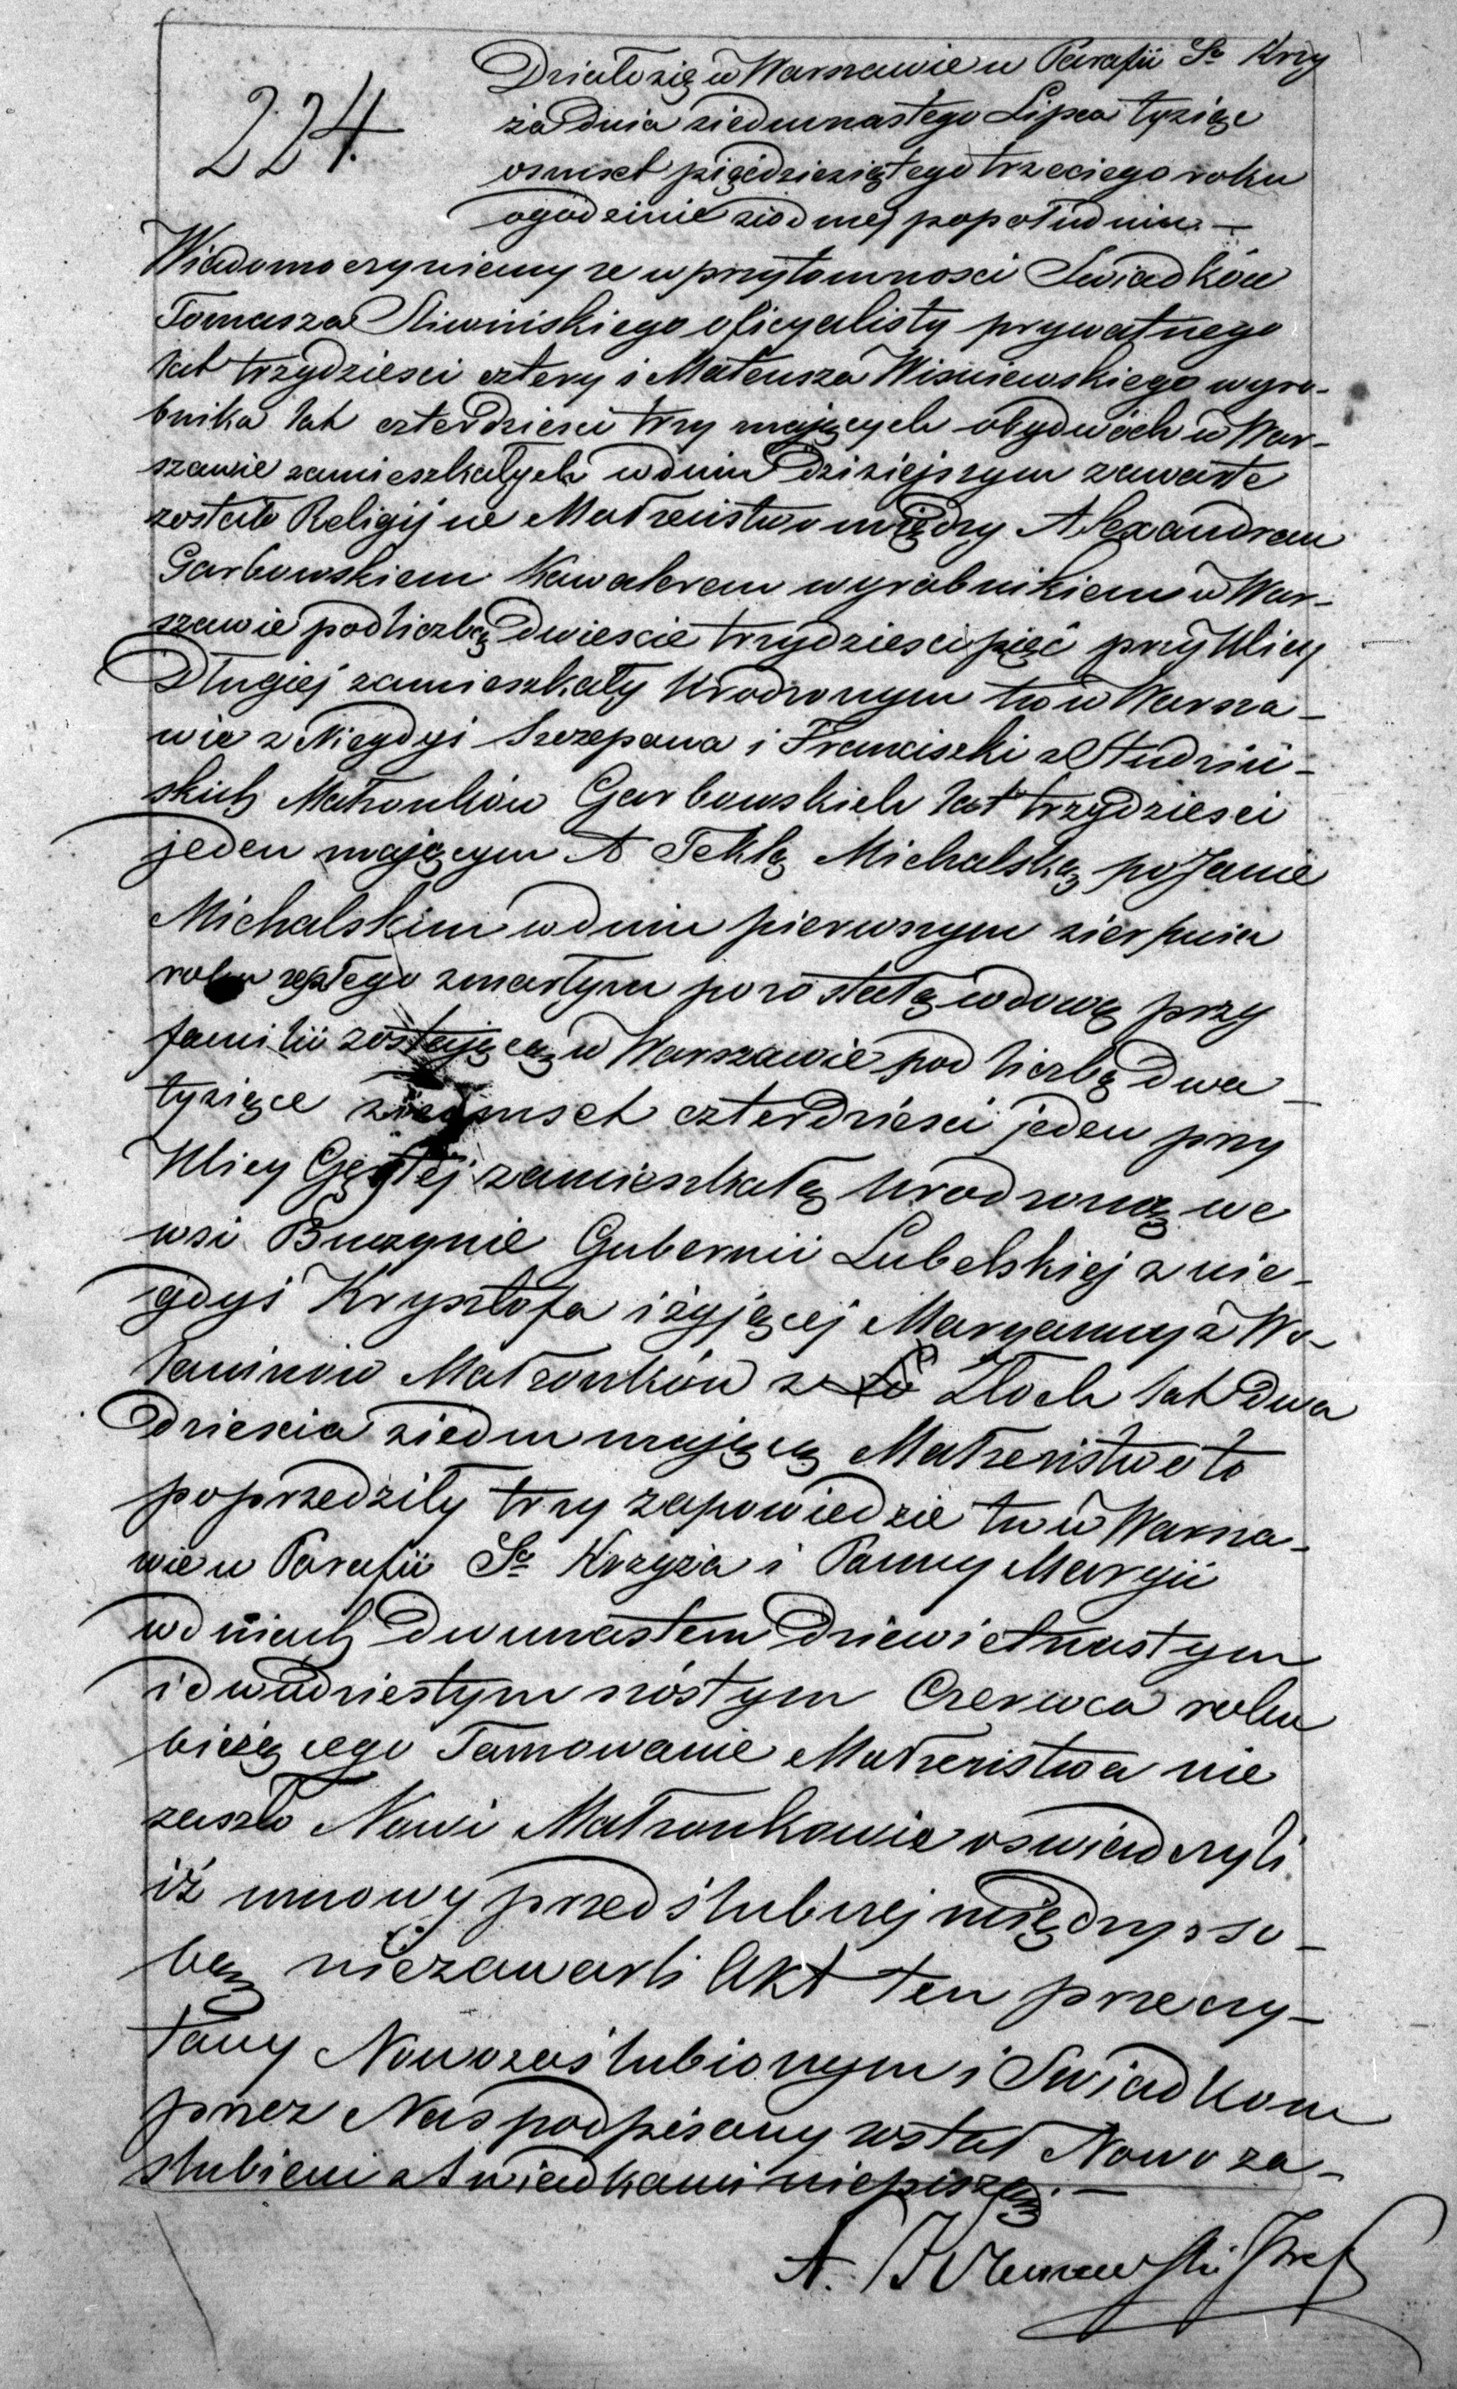 224.
Działo się w Warszawie w Parafii Sgo Krzy
ża dnia siedmnastego Lipca tysiąc
osmset pięćdziesiątego trzeciego roku
o godzinie siodmej popołudniu. —
Wiadomo czyniemy ze w przytomnosci Swiadków
Tomasza Sliwińskiego oficyalisty prywatnego
lat trzydziesci cztery i Mateusza Wisniewskiego wyro-
bnika lat czterdziesci trzy mających obydwóch w War-
szawie zamieszkałych w dniu dzisiejszym zawarte
zostało Religijne Małżeństwo między Alexandrem
Garbowskiem Kawalerem wyrobnikiem w War-
szawie pod liczbą dwiescie trzydziesci pięć przy Ulicy
Długiej zamieszkały Urodzonym tu w Warsza-
wie z Niegdyś Szczepana i Franciszki z Studziń-
skich Małżonków Garbowskich lat trzydziesci
jeden mającym A Teklą Michalską po Janie
Michalskim w dniu pierwszym sierpnia
roku zeszłego zmarłym pozostałą wdową przy
familii zostającą w Warszawie pod liczbą dwa
tysiące siedmset czterdziesci jeden przy
Ulicy Gęstej zamieszkałą Urodzoną we
wsi Buczynie Gubernii Lubelskiej z nie-
gdyś Krysztofa i żyjącej Maryanny z Wo-
Małżonków z Złoch lat dwa
dziescia siedm mającą Małżeństwo to
poprzedziły trzy zapowiedzie tu w Warsza-
wie w Parafii Sgo Krzyża i Panny Maryii
w dniach dwunastem dziewiętnastym
i dwudziestym szóstym Czerwca roku
bieżącego Tamowanie Małżeństwa nie
zaszło Nowi Małżonkowie oswiadczyli
iż umowy przedślubnej między so-
bą niezawarli Akt ten przeczy-
tany Nowozaślubionym i Swiadkom
przez Nas podpisany został Nowo za-
slubieni z Swiadkami niepiszą. —
A.